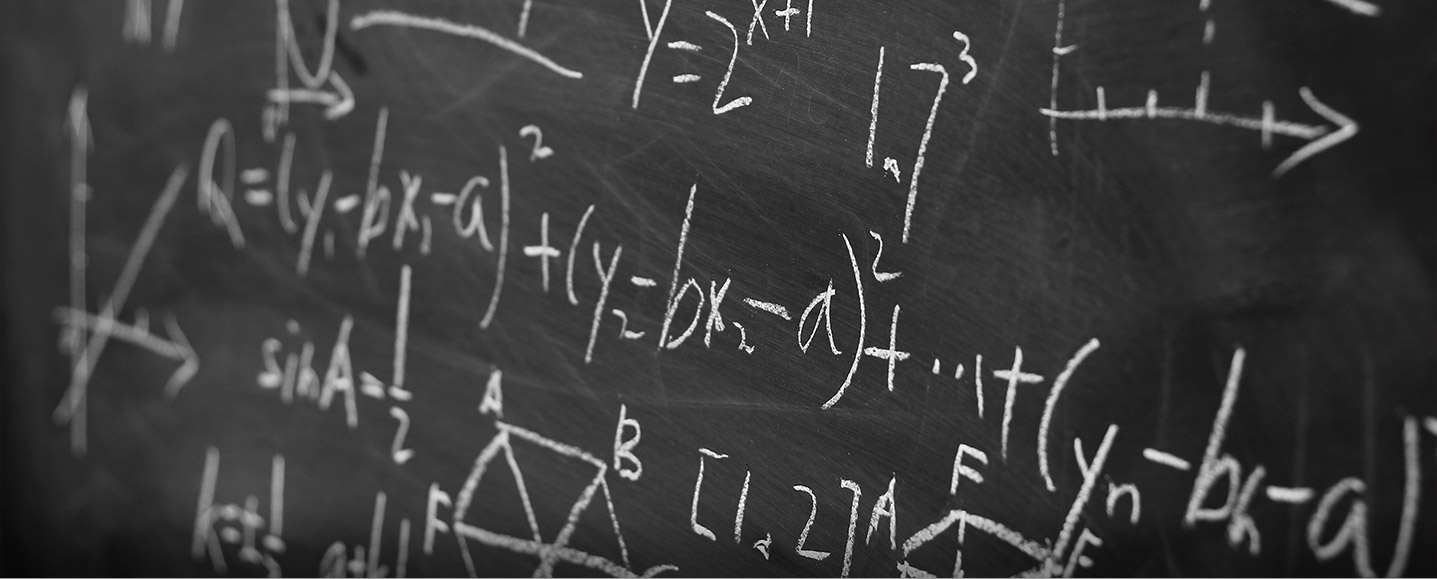 y=2^{x+1}
1.7^3
Q=(y_1-bx_1-a)^2+(y_2-bx_2-a)^2+...+(y_n-b_n-a)
sinA=\frac{1}{2}
A
B
F
[1,2]
A
F
E